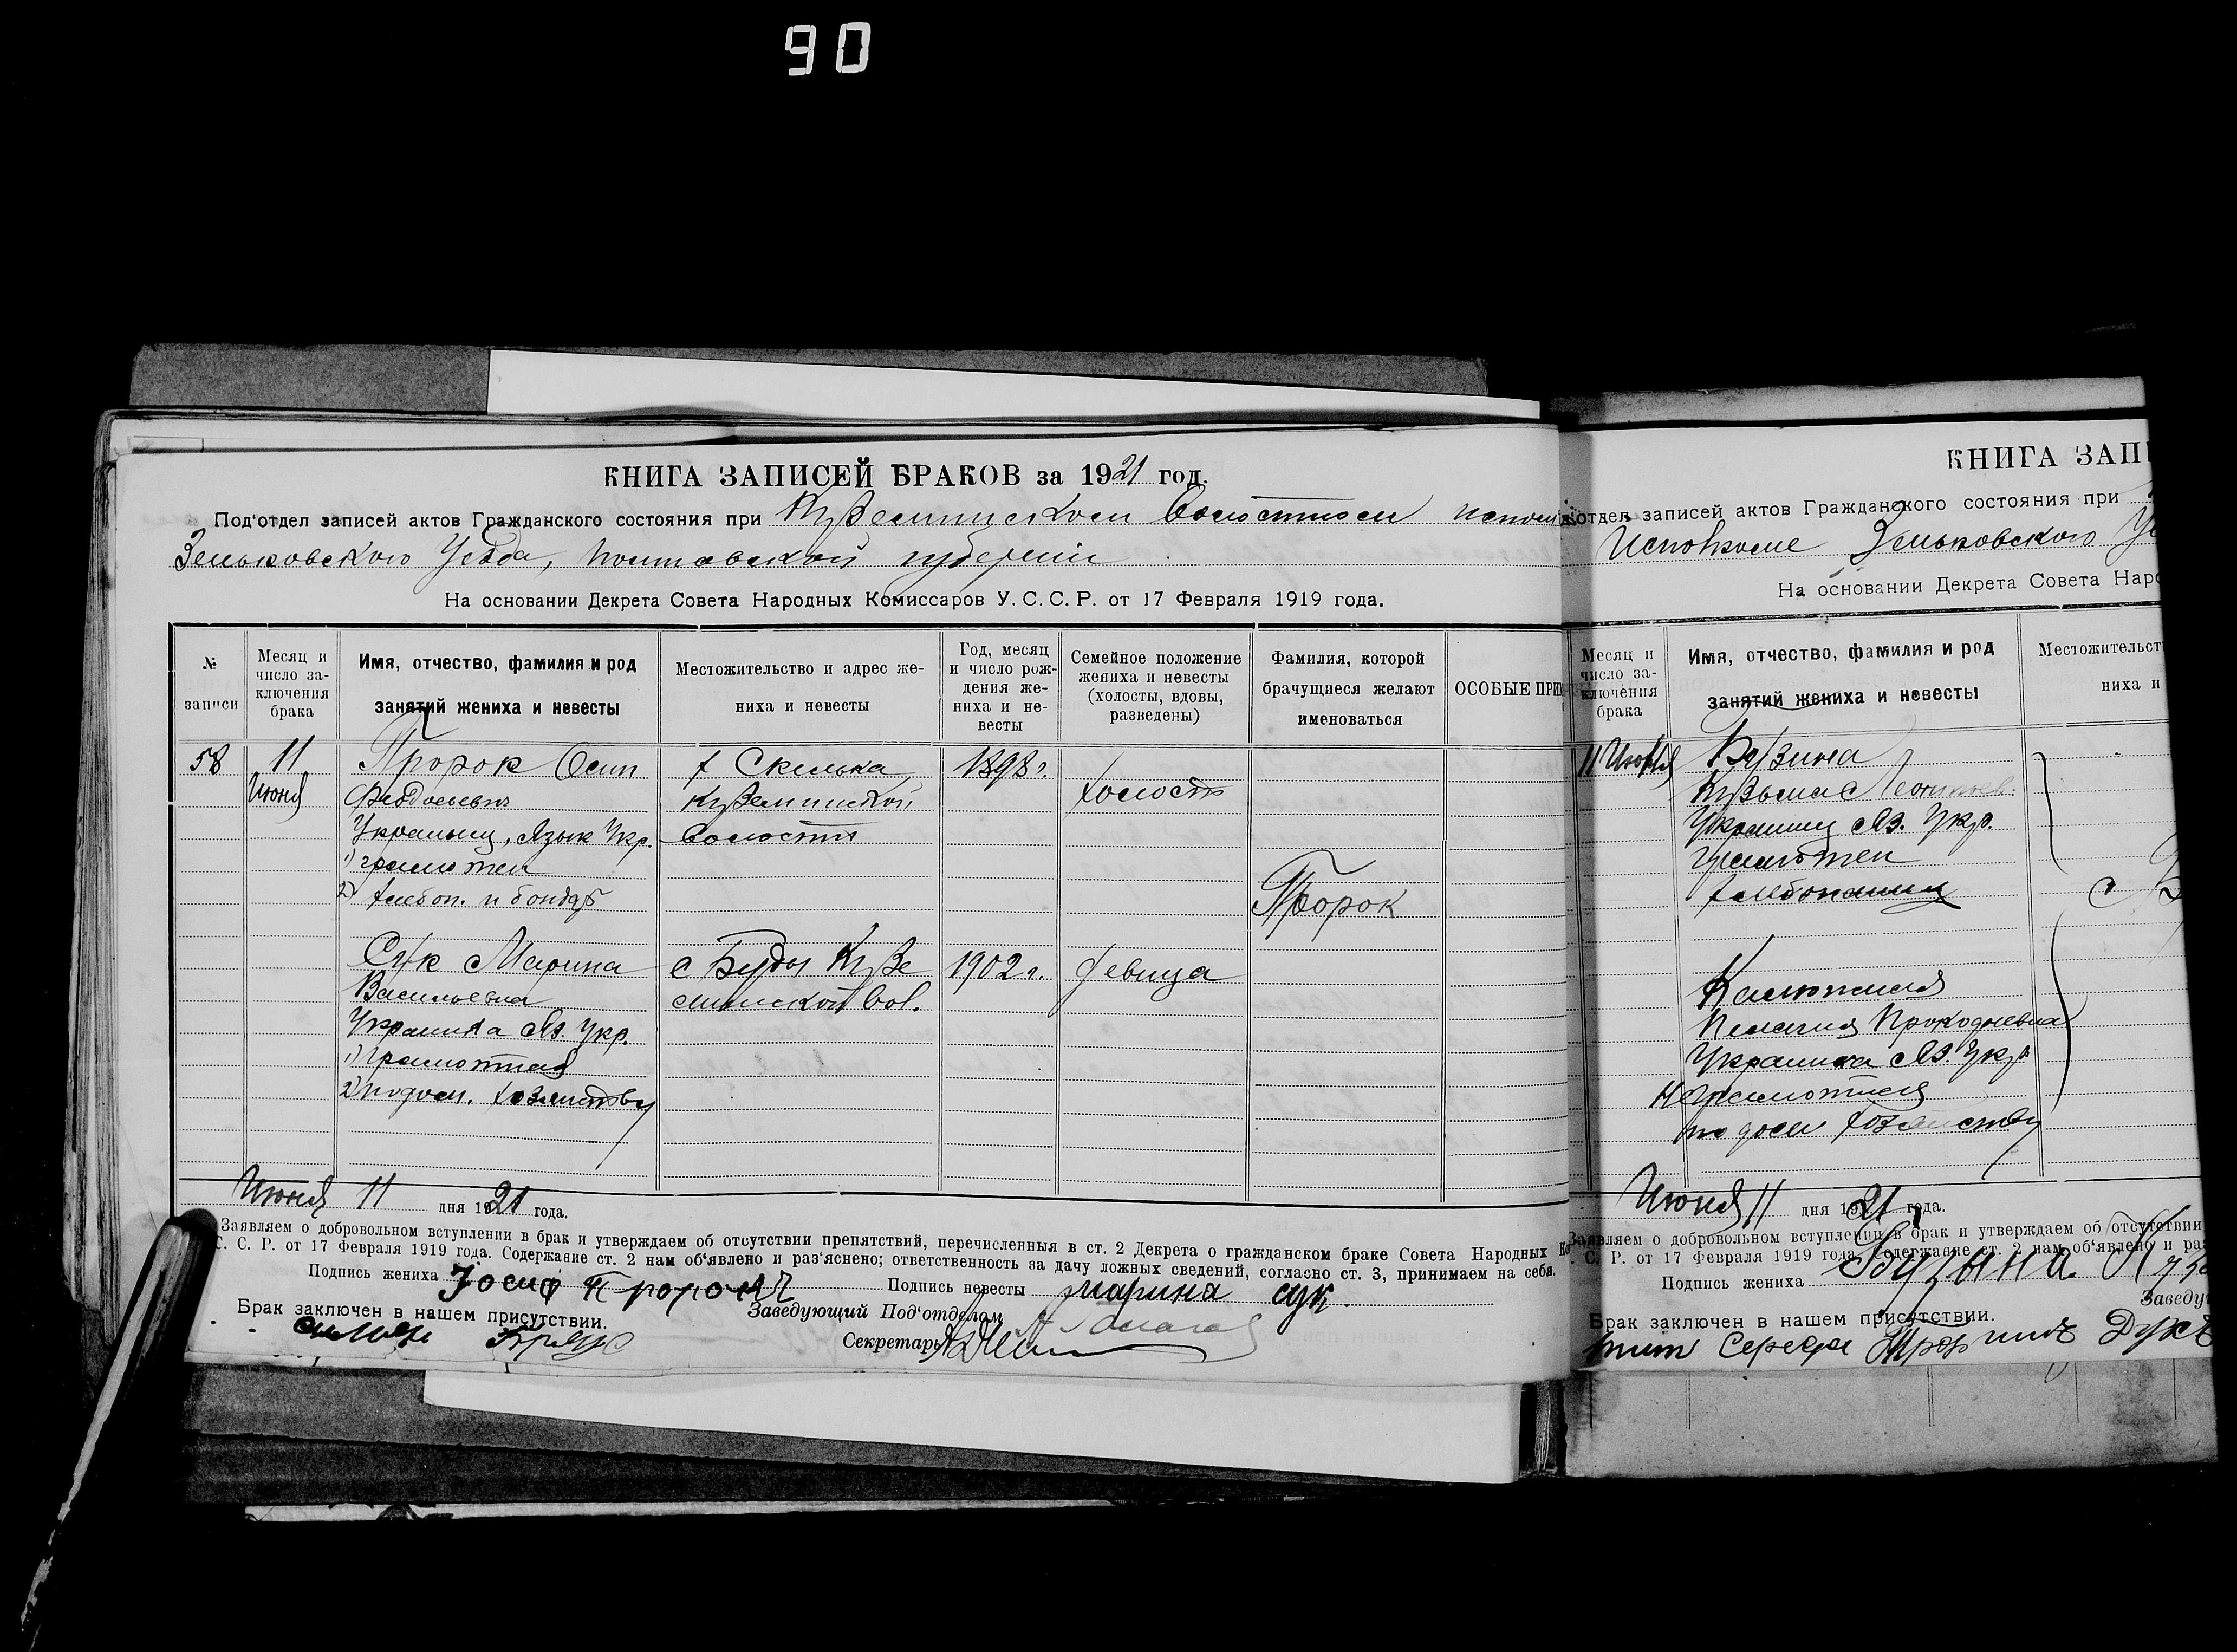 90
КНИГА ЗАПИСЕЙ БРАКОВ за 1921 год.
Под'отдел записей актов Гражданского состояния при Куземинском Волостном исполк
Зеньковского Уезда, Полтавской губернии
На основании Декрета Совета Народных Комиссаров У. С. С. Р. от 17 Февраля 1919 года.
№ записи
Месяц и число заключения брака
Имя, отчество, фамилия и род занятий жениха и невесты
Местожительство и адрес жениха и невесты
Год, месяц и число рождения жениха и невесты
Семейное положение жениха и невесты (холосты, вдовы, разведены)
Фамилия, которой брачущиеся желают именоваться
ОСОБЫЕ ПРИ
58 11 Пророк Осип х Скелька 1898 г.
Июня Феодосьевич Куземинской холост
Украинец, Язык Укр. Волости
1) грамотен
2) хлебоп. и бондарь Пророк
Сук Марина с Буды Кузе 1902 г. девица
Васильевна минской Вол.
Украинка Яз. Укр.
1) Грамотная
2) по дом. хозяйству
Июня 11 дня 1921 года.
Заявляем о добровольном вступлении в брак и утверждаем об отсутствии препятствий, перечисленныя в ст. 2 Декрета о гражданском браке Совета Народных
С. С. Р. от 17 Февраля 1919 года. Содержание ст. 2 нам об'явлено и раз'яснено; ответственность за дачу ложных сведений, согласно ст. 3, принимаем на себя.
Подпись жениха Иосиф Пророк Подпись невесты Марина сук.
Брак заключен в нашем присутствии. Заведующий Под'отделом
Секретарь
КНИГА ЗАПИ
отдел записей актов Гражданского состояния при
Исполкоме Зеньковского Уе
На основании Декрета Совета Наро
Месяц и число заключения брака
Имя, отчество, фамилия и род занятий жениха и невесты
Местожительст
ниха и
11 Июня Бузина
Кузьма Леонтьев.
Украинец Яз. Укр.
Грамотен
хлебопашец
с
Калюжная
Пелагия Прокофиевна
Украинка Яз. Укр.
Неграмотная
по дом хозяйству
Июня 11 дня 1921 года.
Заявляем о добровольном вступлении в брак и утверждаем об отсутствии
С. Р. от 17 Февраля 1919 года. Содержание ст. 2 нам об'явлено и ра
Подпись жениха Бузына Кузь
Заведу
Брак заключен в нашем присутствии.
Середа